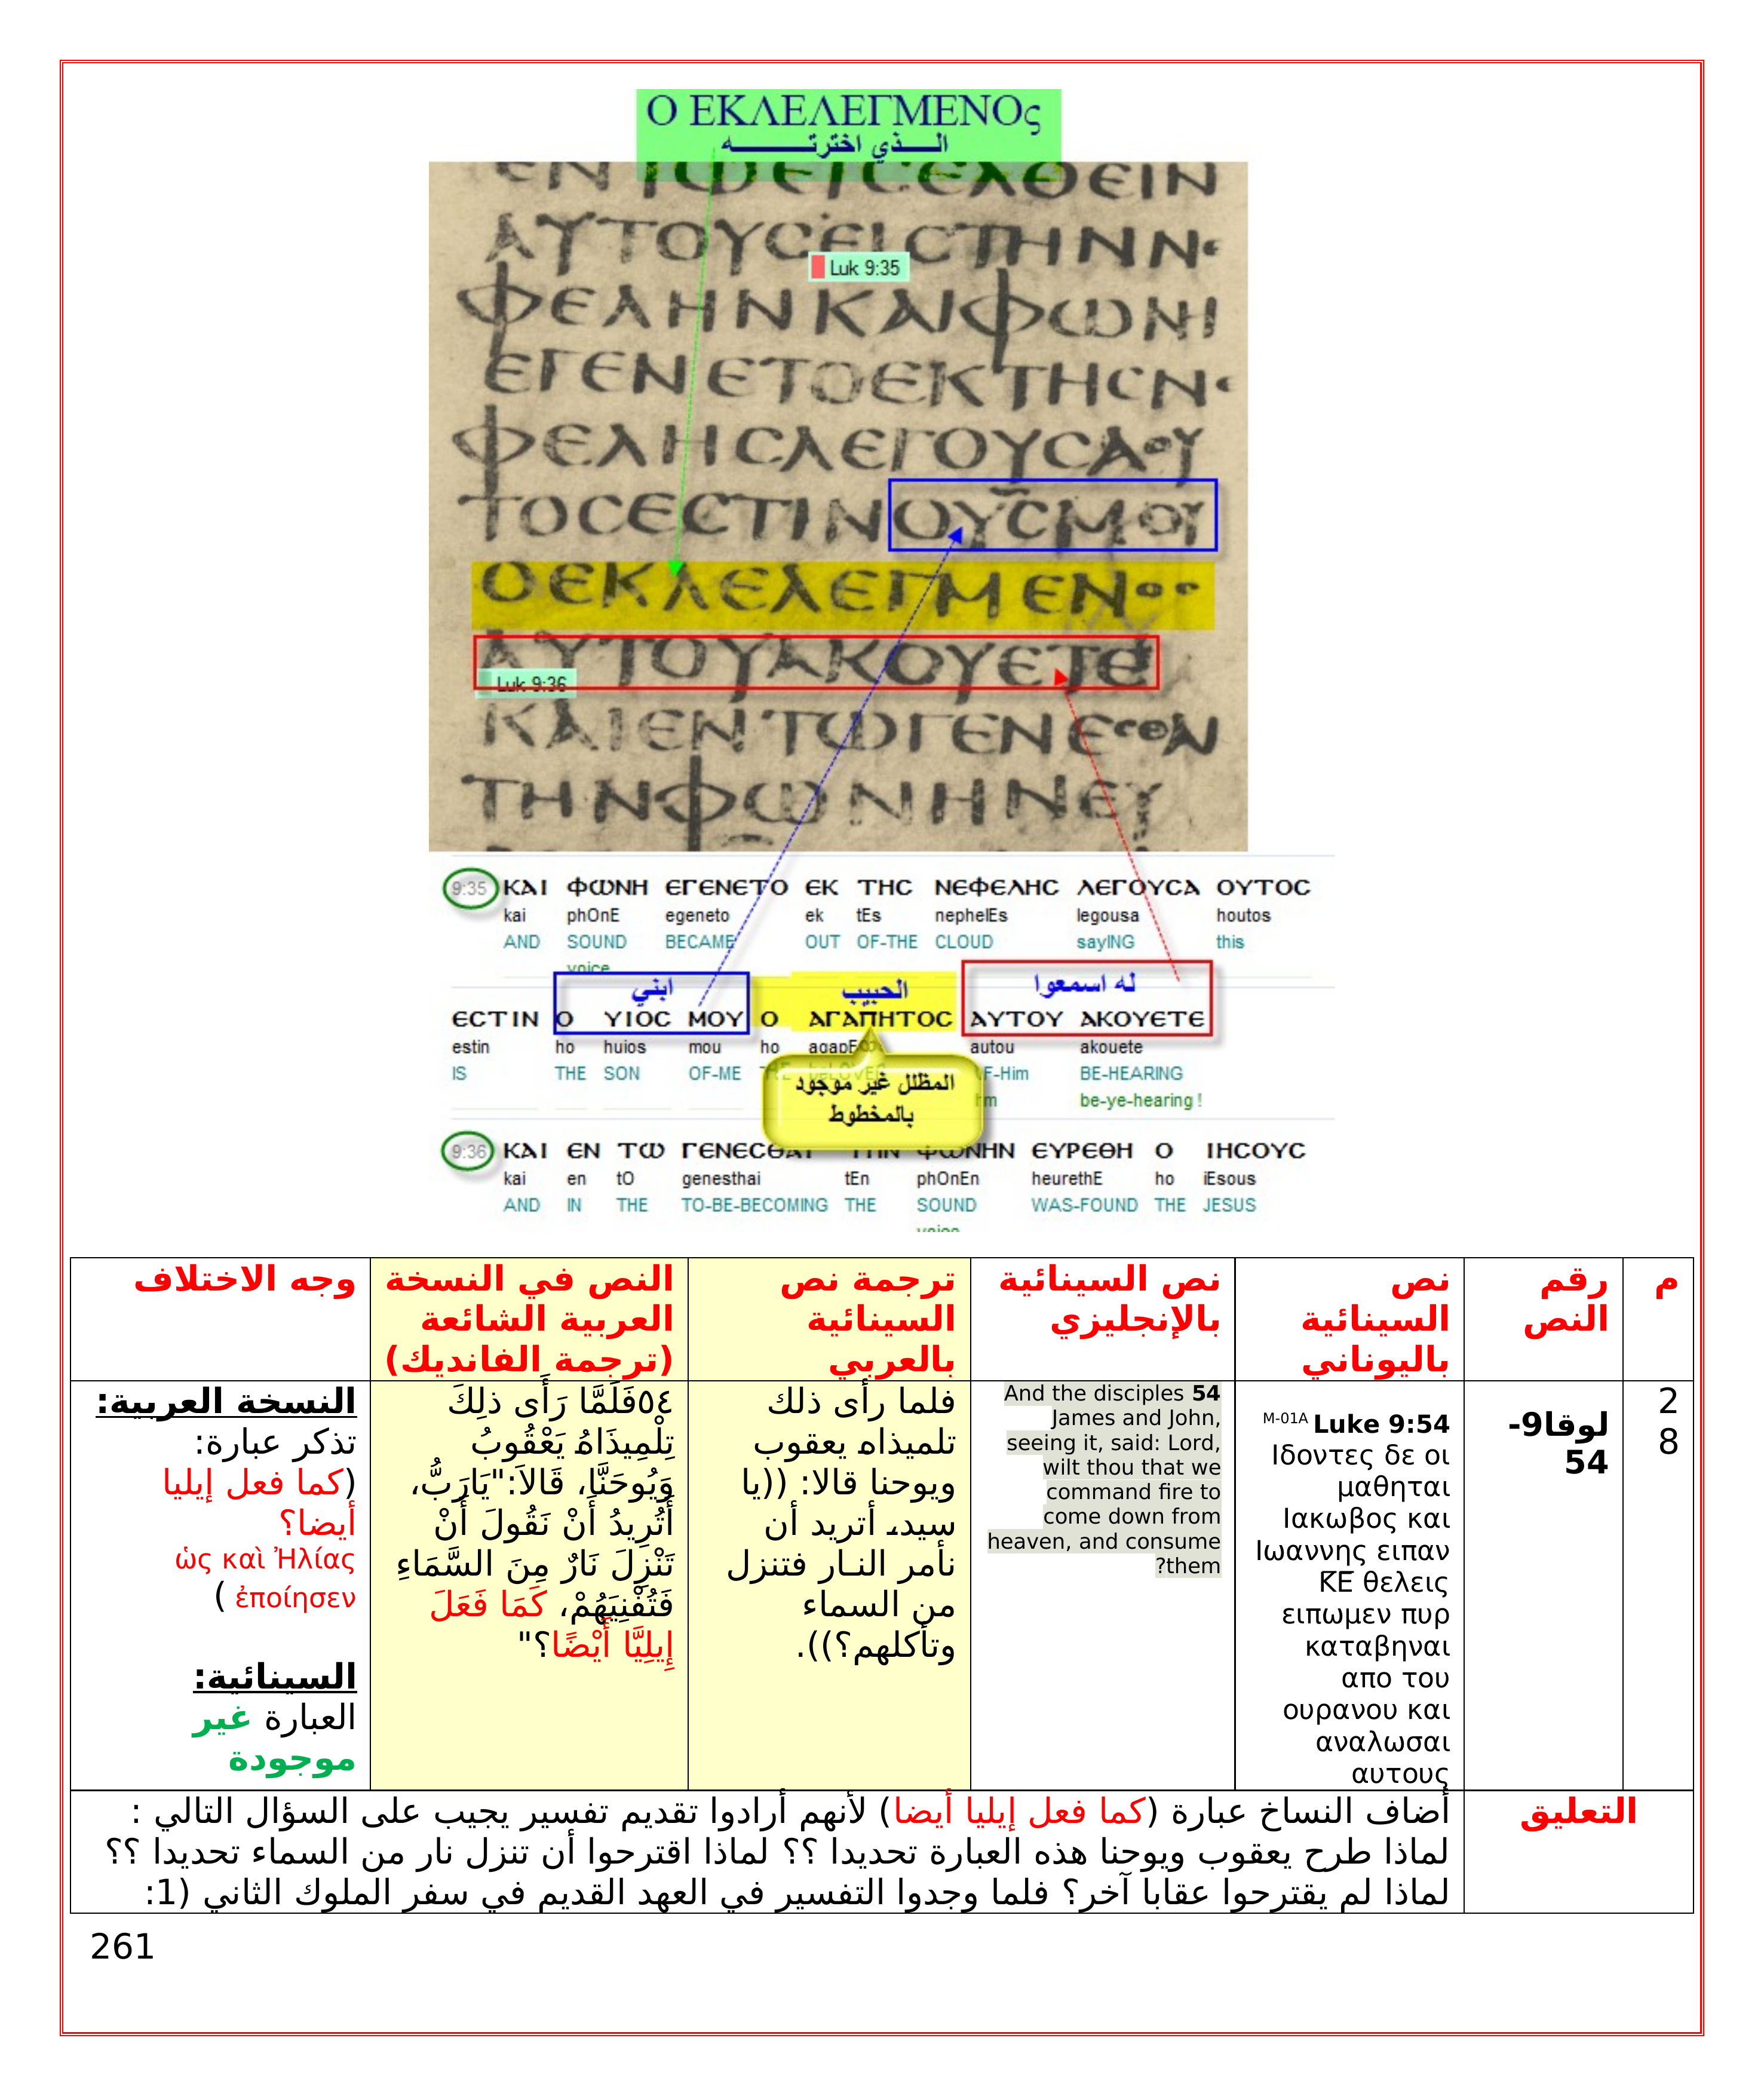 Ο ΕΚΛΕΛΕΓΜΕΝΟς
الـــذي اخترتــــــــه
ΑΥΤΟΥCΕΙCΤΗΝΝε
Luk 9:35
ΦΕΛΗΝΚΑΙΦΩΝΗ
ΕΓΕΝΕΤΟΕΚΤΗCΝε
ΦΕΛΗCΛΕΓΟΥCΑΟΥ
ΤΟCΕCΤΙΝΟΥCΜΟΥ
ΟΕΚΛΕΛΕΓΜΕΝΟC
ΑΥΤΟΥΑΚΟΥΕΤΕ
Luk 9:36
ΚΑΙΕΝΤΩΓΕΝΕCΘΑΙ
ΤΗΝΦΩΝΗΝΕΥ
9:35 ΚΑΙ ΦΩΝΗ ΕΓΕΝΕΤΟ ΕΚ ΤΗC ΝΕΦΕΛΗC ΛΕΓΟΥCΑ ΟΥΤΟC
kai phOnE egeneto ek tEs nephelEs legousa houtos
AND SOUND BECAME OUT OF-THE CLOUD sayING this
voice
ابني الحبيب له اسمعوا
ΕCΤΙΝ Ο ΥΙΟC ΜΟΥ Ο ΑΓΑΠΗΤΟC ΑΥΤΟΥ ΑΚΟΥΕΤΕ
estin ho huios mou ho autou akouete
IS THE SON OF-ME THE BE-HEARING
be-ye-hearing !
المظلل غير موجود
بالمخطوط
9:36 ΚΑΙ ΕΝ ΤΩ ΓΕΝΕCΘΑΙ ΤΗΝ ΦΩΝΗΝ ΕΥΡΕΘΗ Ο ΙΗCΟΥC
kai en tO genesthai tEn phOnEn heurethE ho iEsous
AND IN THE TO-BE-BECOMING THE SOUND WAS-FOUND THE JESUS
voice
م
رقم
النص
نص
السينائية
باليوناني
نص السينائية
بالإنجليزي
ترجمة نص
السينائية
بالعربي
النص في النسخة
العربية الشائعة
(ترجمة الفانديك)
وجه الاختلاف
2
8
لوقا9-
54
M-01A Luke 9:54
Ιδοντες δε οι
μαθηται
Ιακωβος και
Ιωαννης ειπαν
Κ̅Ε̅ θελεις
ειπωμεν πυρ
καταβηναι
απο του
ουρανου και
αναλωσαι
αυτους
And the disciples 54
James and John,
seeing it, said: Lord,
wilt thou that we
command fire to
come down from
heaven, and consume
?them
فلما رأى ذلك
تلميذاه يعقوب
ويوحنا قالا: ((يا
سيد، أتريد أن
نأمر النـار فتنزل
من السماء
وتأكلهم؟)).
٥٤فَلَمَّا رَأَى ذلِكَ
تِلْمِيذَاهُ يَعْقُوبُ
وَيُوحَنَّا، قَالاَ:"يَارَبُّ،
أَتُرِيدُ أَنْ نَقُولَ أَنْ
تَنْزِلَ نَارٌ مِنَ السَّمَاءِ
فَتُفْنِيَهُمْ، كَمَا فَعَلَ
إِيلِيَّا أَيْضًا؟"
النسخة العربية:
تذكر عبارة:
(كما فعل إيليا
أيضا؟
ὡς καὶ Ἠλίας
ἐποίησεν )
السينائية:
العبارة غير
موجودة
التعليق
أضاف النساخ عبارة (كما فعل إيليا أيضا) لأنهم أرادوا تقديم تفسير يجيب على السؤال التالي :
لماذا طرح يعقوب ويوحنا هذه العبارة تحديدا ؟؟ لماذا اقترحوا أن تنزل نار من السماء تحديدا ؟؟
لماذا لم يقترحوا عقابا آخر؟ فلما وجدوا التفسير في العهد القديم في سفر الملوك الثاني (1:
261